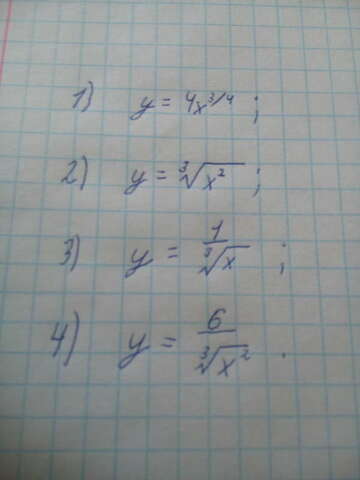 1) y = 4x^{3/4};
2) y = ∛(x²);
3) y = 1/∛x;
4) y = 6/∛(x²).